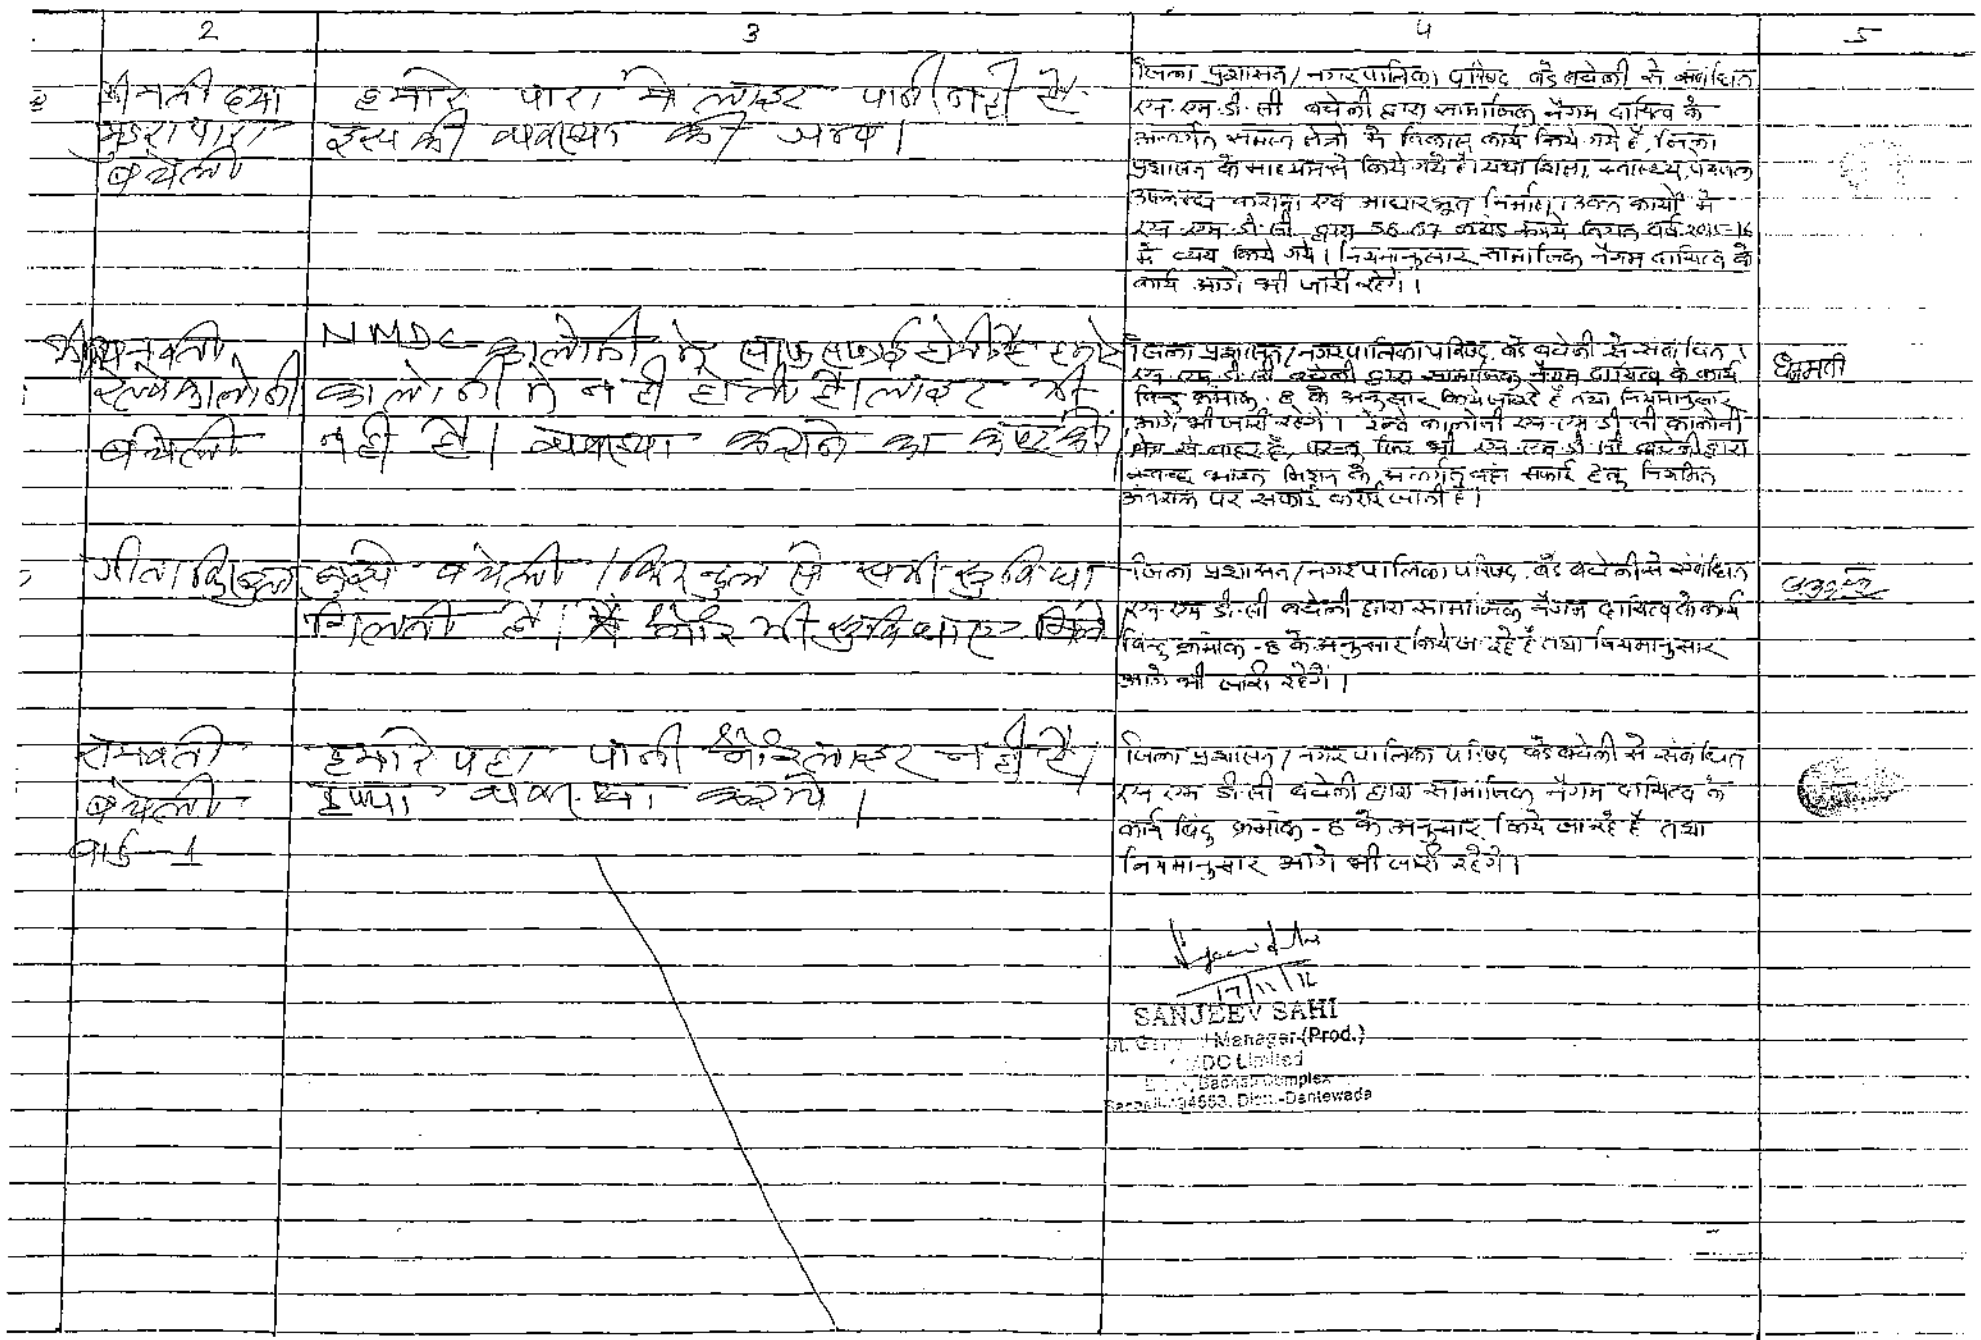 2
3
4
5
श्रीमती दया
मुडरापारा
बचेली
हमारे पारा में लाइट पानी नही है
इस की व्यवस्था की जाय।
जिला प्रशासन/नगरपालिका परिषद बडे बचेली से संबंधित
एन.एम.डी.सी बचेली द्वारा सामाजिक नैगम दायित्व के
अन्तर्गत समस्त क्षेत्रो मे विकास कार्य किये गये है, जिला
प्रशासन के माध्यम से किये गये है। यथा शिक्षा, स्वास्थ्य, पेयजल
उपलब्ध कराना एवं आधारभूत निर्माण। उक्त कार्यों में
एन.एम.डी.सी द्वारा 56.67 करोड रूपये विगत वर्ष 2015-16
मे व्यय किये गये। नियमानुसार सामाजिक नैगम दायित्व के
कार्य आगे भी जारी रहेंगे।
रेल्वे कालोनी
बचेली
NMDC कालोनी में साफ सफाई होती है हमारे
कालोनी में नही होती है। लाइट भी
नही है। व्यवस्था कराने का कष्ट करे
जिला प्रशासन/नगरपालिका परिषद बडे बचेली से संबंधित
एन.एम.डी.सी बचेली द्वारा सामाजिक नैगम दायित्व के कार्य
बिन्दु क्रमांक-8 के अनुसार किये जा रहे है तथा नियमानुसार
आगे भी जारी रहेंगे। रेल्वे कालोनी एन.एम.डी.सी कालोनी
क्षेत्र से बाहर है, परन्तु फिर भी एन.एम.डी.सी बचेली द्वारा
स्वच्छ भारत मिशन के अन्तर्गत वहां सफाई हेतु नियमित
अंतराल पर सफाई कराई जाती है।
धनमती
गीता
बचेली
से सभी सुविधा
मिलती है। और भी सुविधाए मिले
जिला प्रशासन/नगरपालिका परिषद बडे बचेली से संबंधित
एन.एम.डी.सी बचेली द्वारा सामाजिक नैगम दायित्व के कार्य
बिन्दु क्रमांक-8 के अनुसार किये जा रहे है तथा नियमानुसार
आगे भी जारी रहेंगे।
रोमवती
बचेली
वार्ड-1
हमारे यहा पानी और लाइट नही है
व्यवस्था
जिला प्रशासन/नगरपालिका परिषद बडे बचेली से संबंधित
एन.एम.डी.सी बचेली द्वारा सामाजिक नैगम दायित्व के
कार्य बिंदु क्रमांक-8 के अनुसार किये जा रहे है तथा
नियमानुसार आगे भी जारी रहेंगे।
17/11/16
SANJEEV SAHI
Manager (Prod.)
Limited
Complex
Distt.-Dantewada